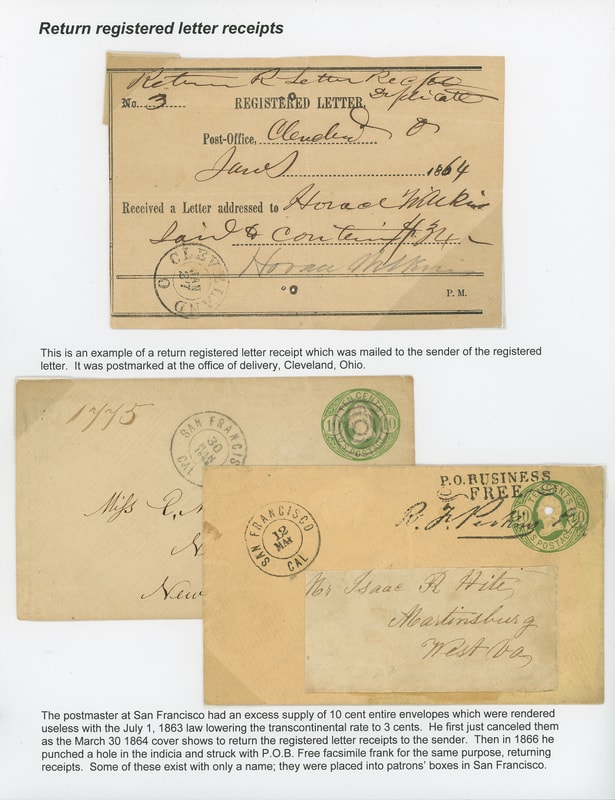 Return registered letter receipts
Return R Letter Receipt
Duplicate
No. 3 REGISTERED LETTER,
Post-Office, Cleveland O
Jan 1864
Received a Letter addressed to Horace Wilkins
Said to contain
Horace Wilkins
CLEVELAND O
JAN
27
P. M.
This is an example of a return registered letter receipt which was mailed to the sender of the registered
letter. It was postmarked at the office of delivery, Cleveland, Ohio.
1775
SAN FRANCISCO
30
MAR
CAL
TEN CENTS
10 10
U.S. POSTAGE
Miss
New
P.O. BUSINESS
FREE
SAN FRANCISCO
12
MAI
CAL
TEN CENTS
U.S. POSTAGE
Mr Isaac R Hite
Martinsburg
West Va
The postmaster at San Francisco had an excess supply of 10 cent entire envelopes which were rendered
useless with the July 1, 1863 law lowering the transcontinental rate to 3 cents. He first just canceled them
as the March 30 1864 cover shows to return the registered letter receipts to the sender. Then in 1866 he
punched a hole in the indicia and struck with P.O.B. Free facsimile frank for the same purpose, returning
receipts. Some of these exist with only a name; they were placed into patrons' boxes in San Francisco.